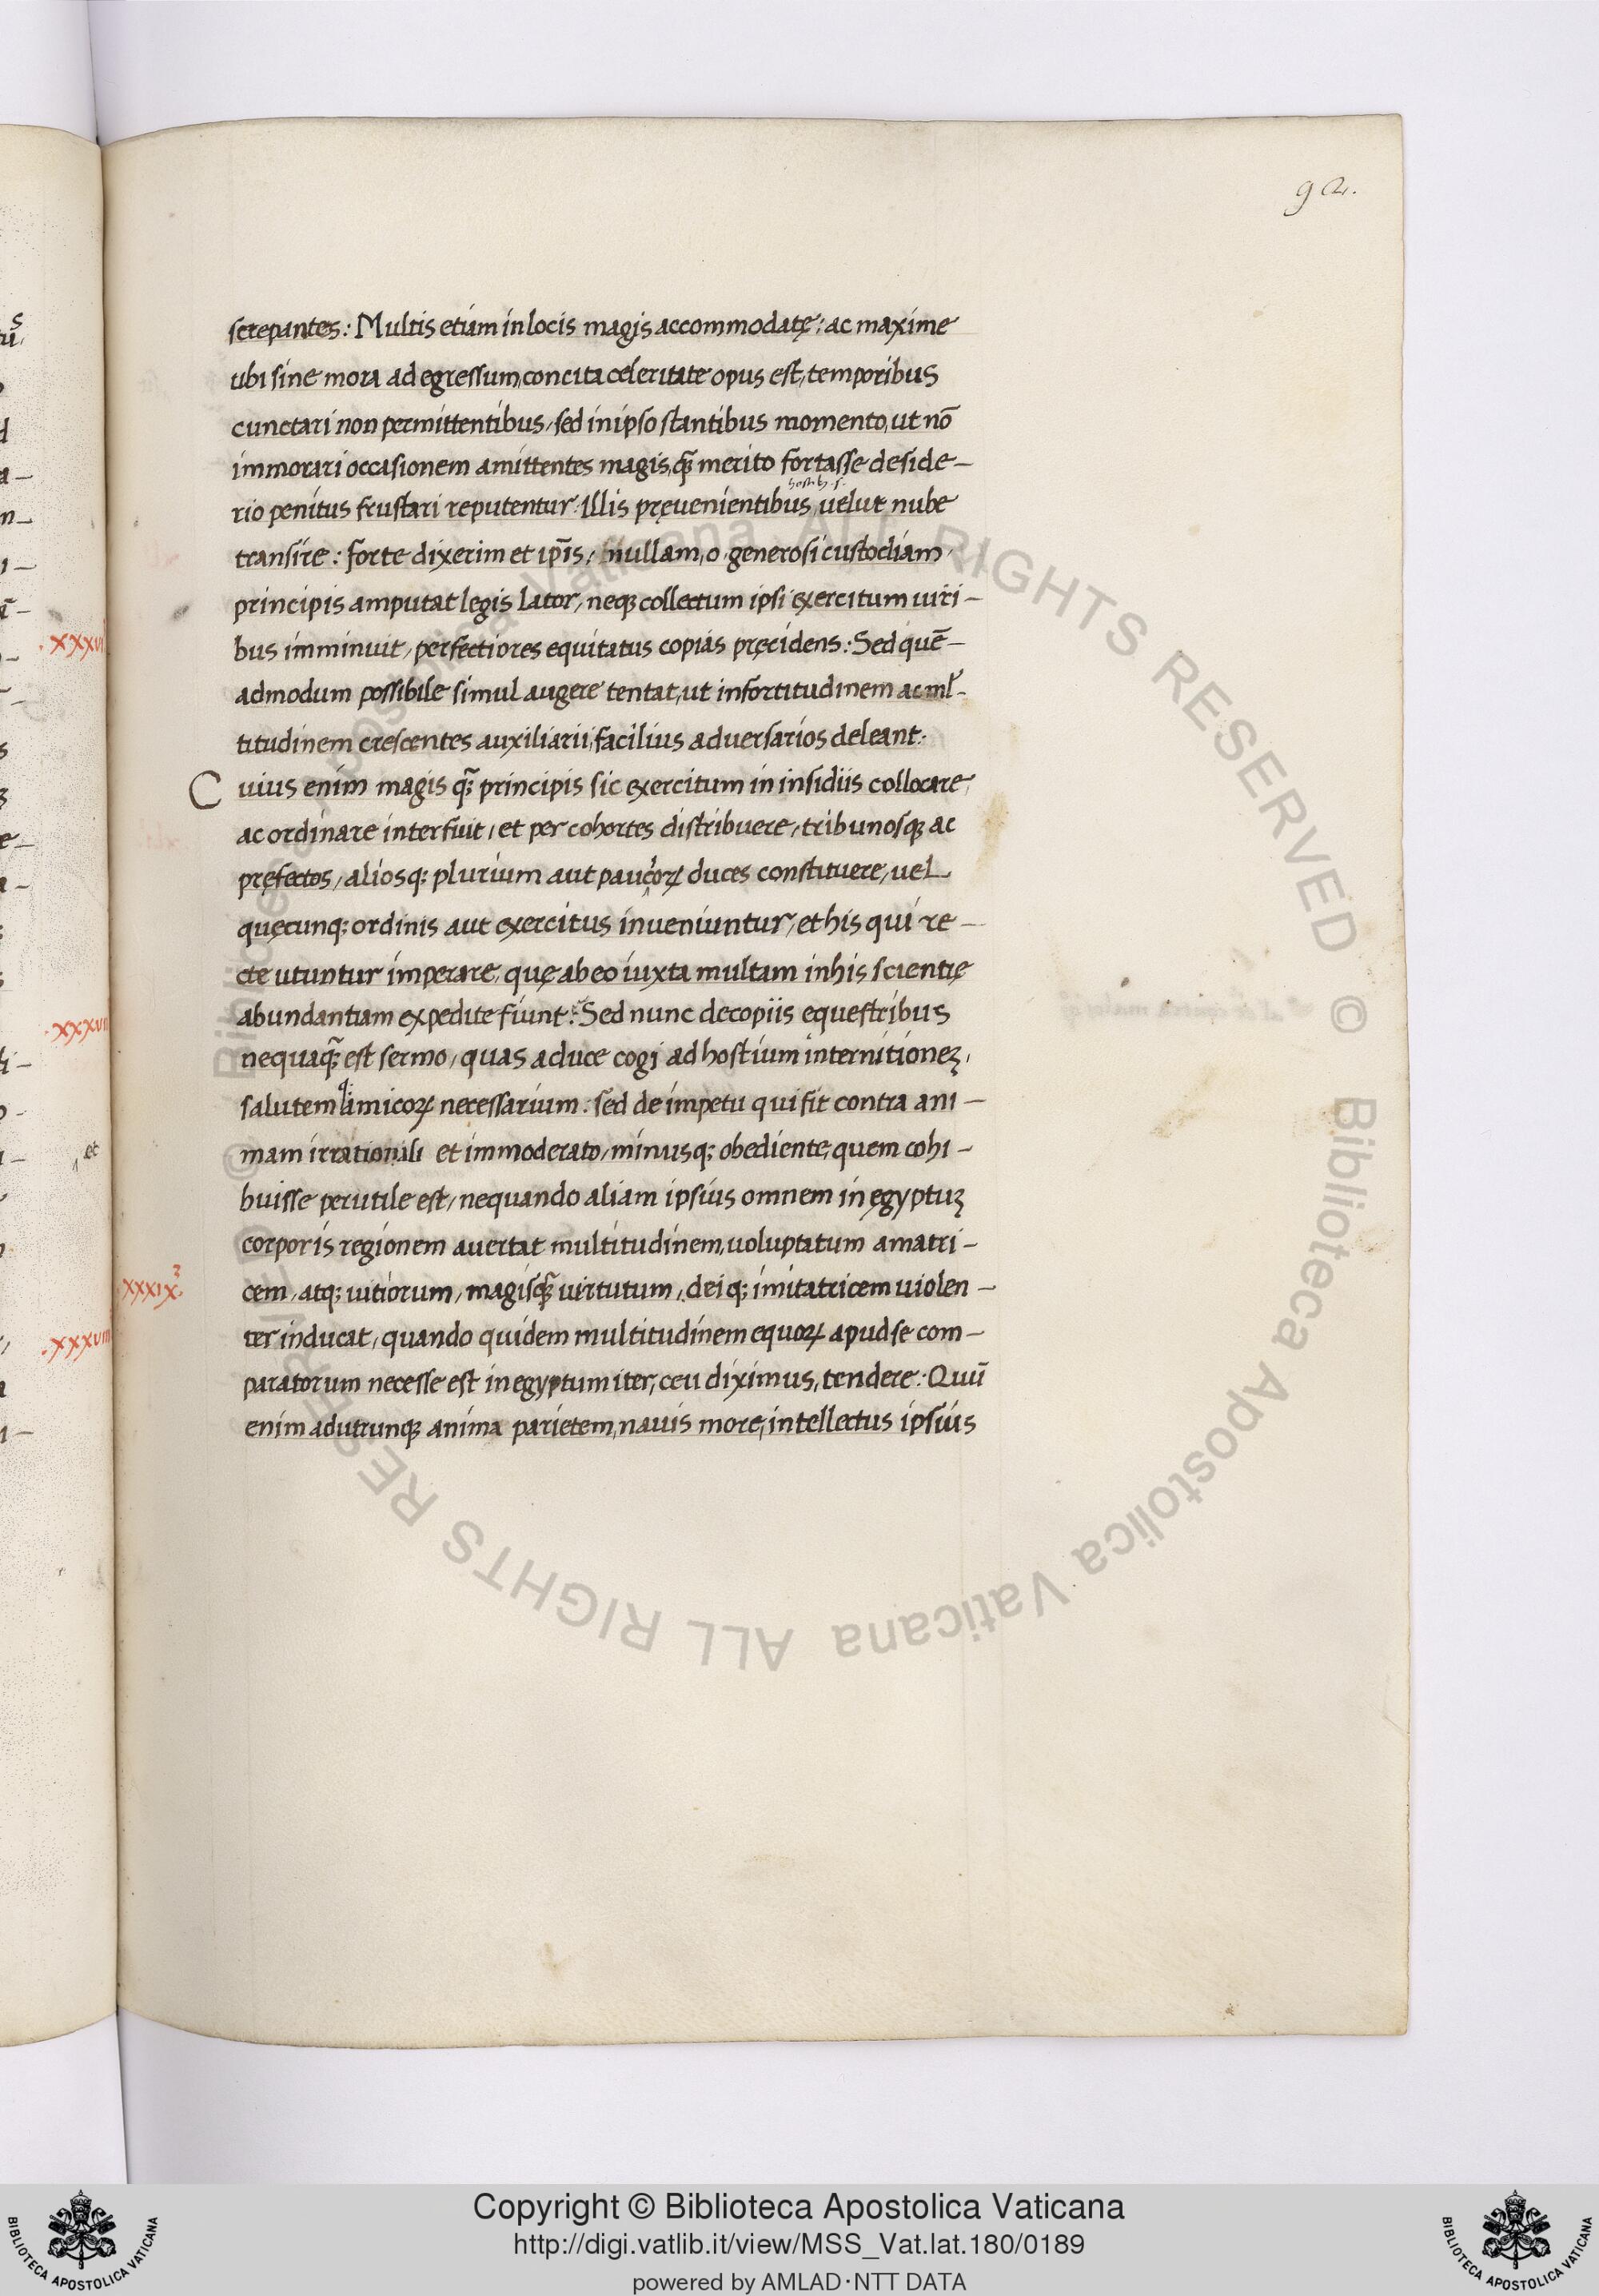 92.
screpantes: Multis etiam in locis magis accommodatę: ac maxime
ubi sine mora ad egressum, concita celeritate opus est, temporibus
cunctari non permittentibus, sed in ipso stantibus momento, ut nō
immorari occasionem amittentes magis, q̄ merito fortasse deside-
hostib; s.
rio penitus frustari reputentur. Illis pręvenientibus, velut nube
transire: forte dixerim et ip̄is: Nullam, o generosi custodiam,
principis amputat legis Lator, neq; collectum ipsi exercitum viri-
bus imminuit, perfectiores equitatus copias pręcidens: Sed quē-
admodum possibile simul augere tentat, ut in fortitudinem ac ml̄-
titudinem crescentes auxiliarii, facilius adversarios deleant:
C uius enim magis q̄ principis sic exercitum in insidiis collocare,
ac ordinare interfuit, et per cohortes distribuere, tribunosq; ac
pręfectos, aliosq; plurium aut paucioꝝ duces constituere, vel
quęcunq; ordinis aut exercitus inveniuntur, et his qui re-
cte utuntur imperare, quę ab eo iuxta multam in his scientię
abundantiam expedite fiunt: Sed nunc de copiis equestribus
nequaq̄ est sermo, quas a duce cogi ad hostium internitioneꝫ,
salutem amicoꝝ necessarium: sed de impetu qui fit contra ani-
mam irrationali et immoderato, minusq; obediente, quem cohi-
buisse perutile est, nequando aliam ipsius omnem in ęgyptuꝫ
corporis regionem avertat multitudinem, voluptatum amatri-
.XXXIX.
cem, atq; vitiorum, magisq̄ virtutum, deiq; imitatricem violen-
ter inducat, quando quidem multitudinem equoꝝ apud se com-
paratorum necesse est in egyptum iter, ceu diximus, tendere: Quū
enim ad utrunq; anima parietem, navis more, intellectus ipsius
.XXXVI
.XXXVII
et
.XXXVIII
© Biblioteca Apostolica Vaticana ALL RIGHTS RESERVED © Biblioteca Apostolica Vaticana ALL RIGHTS RESERVED
Copyright © Biblioteca Apostolica Vaticana
http://digi.vatlib.it/view/MSS_Vat.lat.180/0189
powered by AMLAD·NTT DATA
BIBLIOTECA APOSTOLICA VATICANA
BIBLIOTECA APOSTOLICA VATICANA